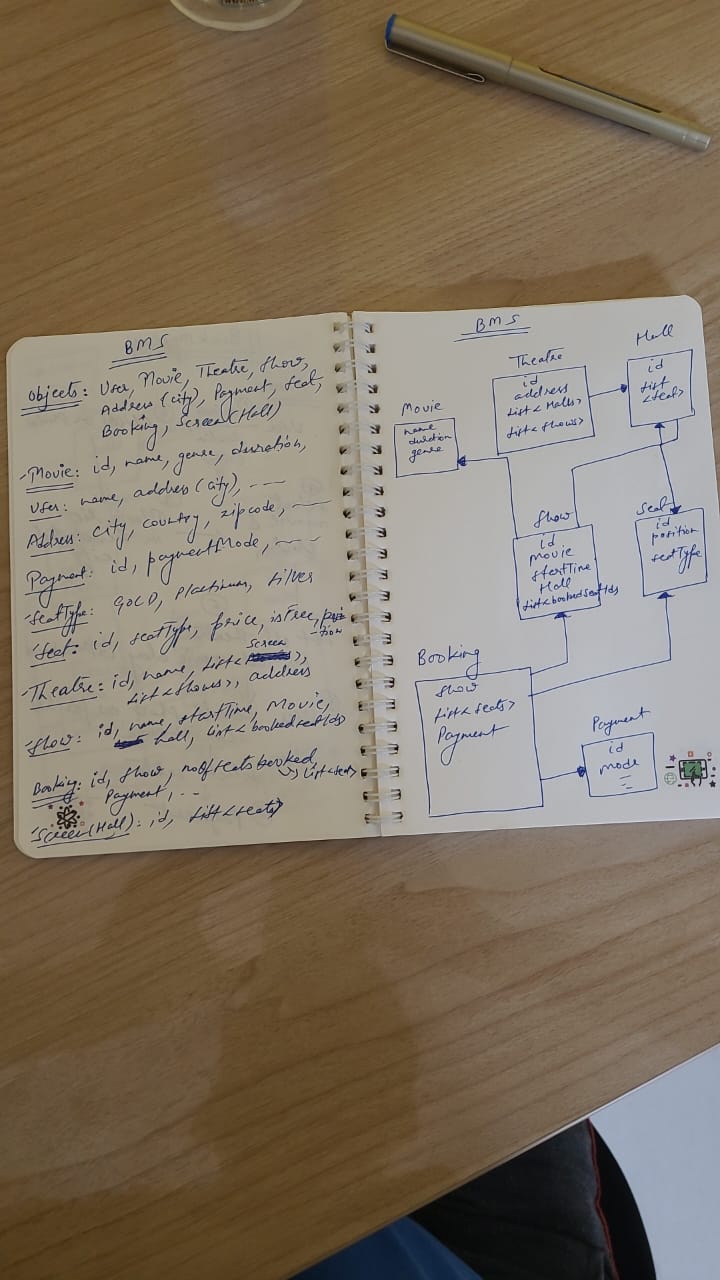 BMS
Objects: User, Movie, Theatre, Show,
Address (city), Payment, Seat,
Booking, Screen (Hall)
Movie: id, name, genre, duration,
User: name, address (city), ---
Address: city, country, zipcode, ---
Payment: id, paymentMode, ---
SeatType: GOLD, Platinum, Silver
Seat: id, seatType, price, isFree, position
Theatre: id, name, List<Screen>,
List<Shows>, address
Show: id, name, startTime, Movie,
hall, List<bookedSeatIds>
Booking: id, Show, noOfSeatsBooked,
Payment, .. List<Seat>
Screen (Hall): id, List<Seats>
BMS
Theatre
id
address
List<Halls>
List<Shows>
Hall
id
List
<Seat>
Movie
name
duration
genre
Show
id
movie
startTime
Hall
List<bookedSeatIds>
Seat
id
position
seatType
Booking
Show
List<seats>
Payment
Payment
id
mode